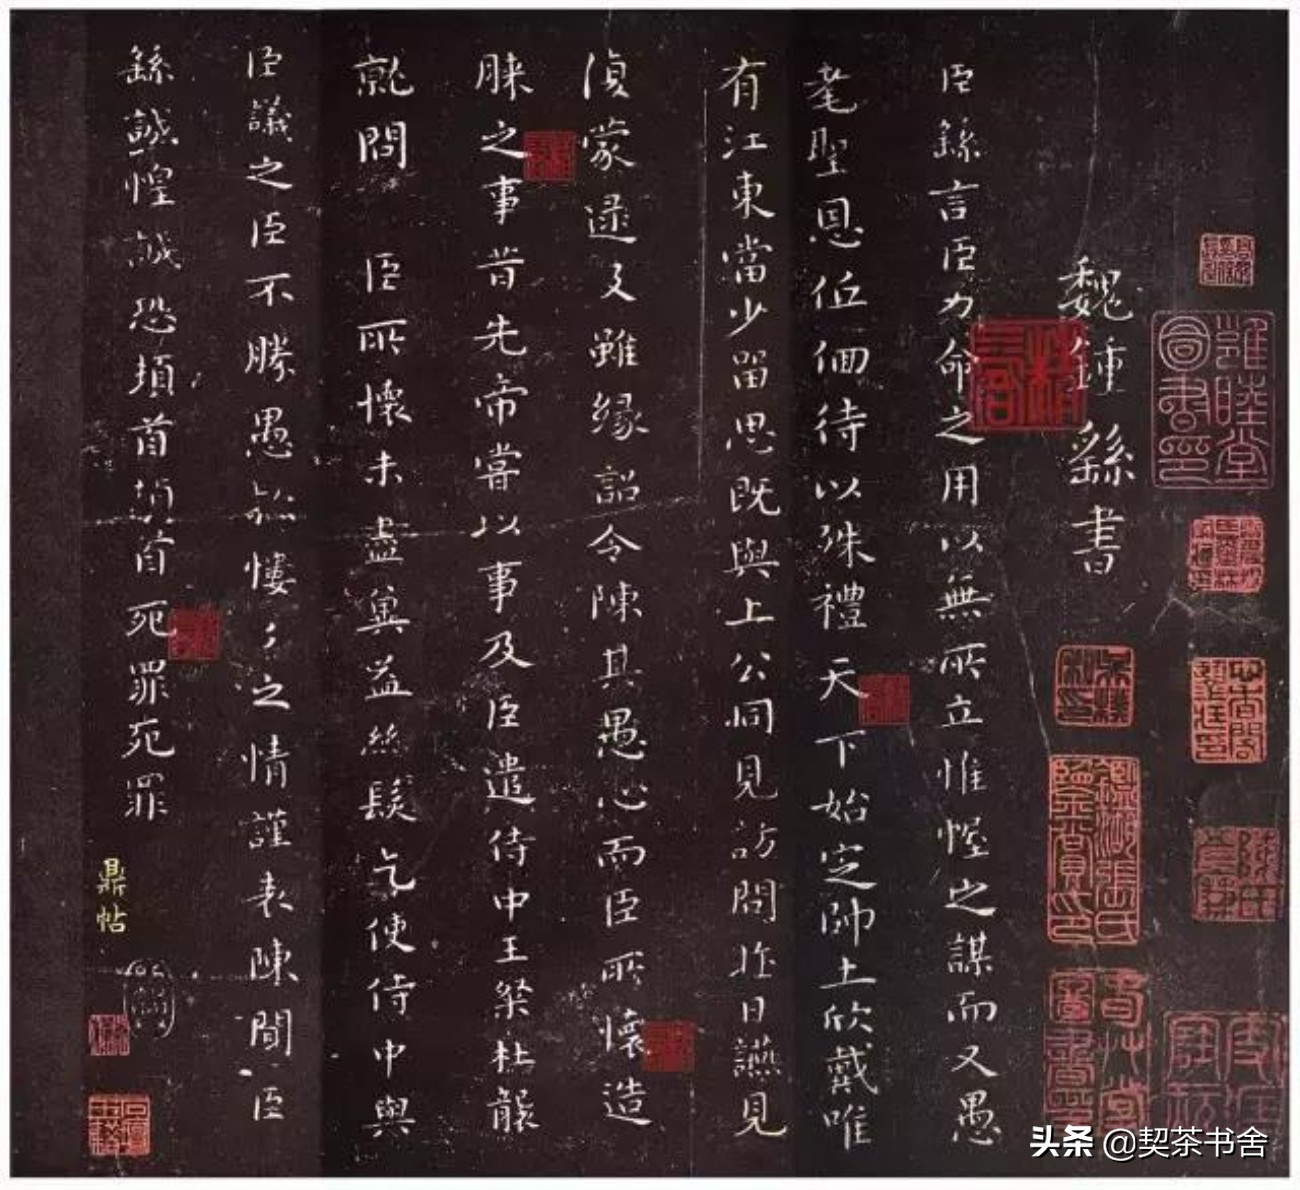 魏鍾繇書
臣繇言臣力命之用以無所立惟幄之謀而又愚
耄聖恩低佪待以殊禮天下始定帥土欣戴唯
有江東當少留思既與上公同見訪問昨日讌見
復蒙逮及雖緣詔令陳其愚心而臣所懷造
膝之事昔先帝嘗以事及臣遣侍中王粲杜襲
就問臣所懷未盡冀益絲髮乞使侍中與
臣議之臣不勝愚款慺〻之情謹表陳聞臣
繇誠惶誠恐頓首頓首死罪死罪
鼎帖
頭條 @契茶书舍